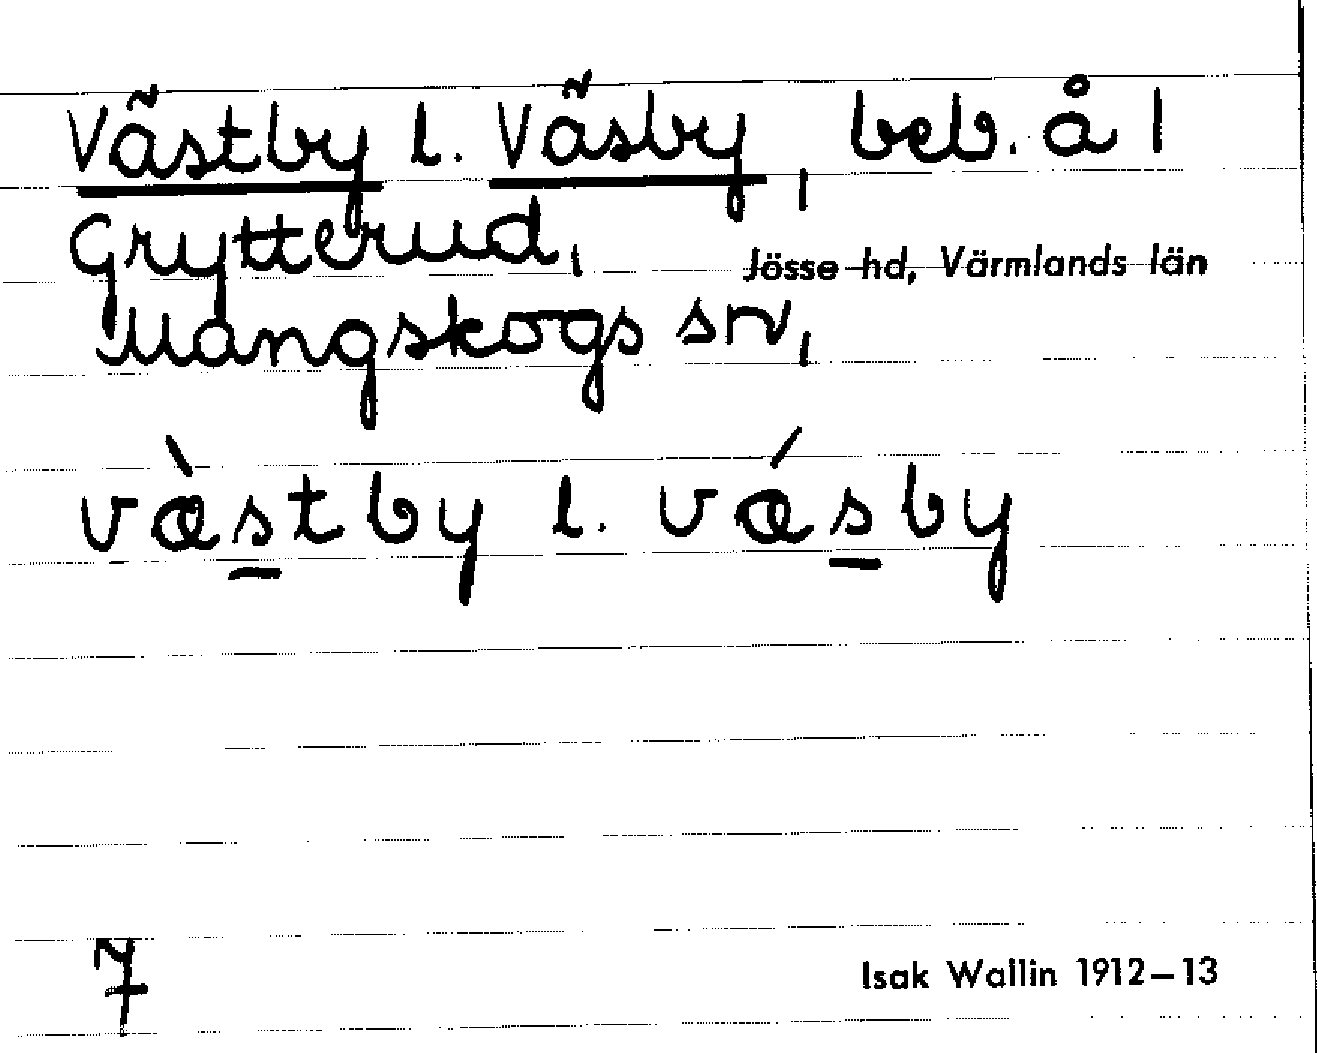 Västby l. Väsby, beb. å 1
Grytterud, Jösse hd, Värmlands län
Mangskogs sn,
væ̀stby l. vǽsby
7 Isak Wallin 1912–13